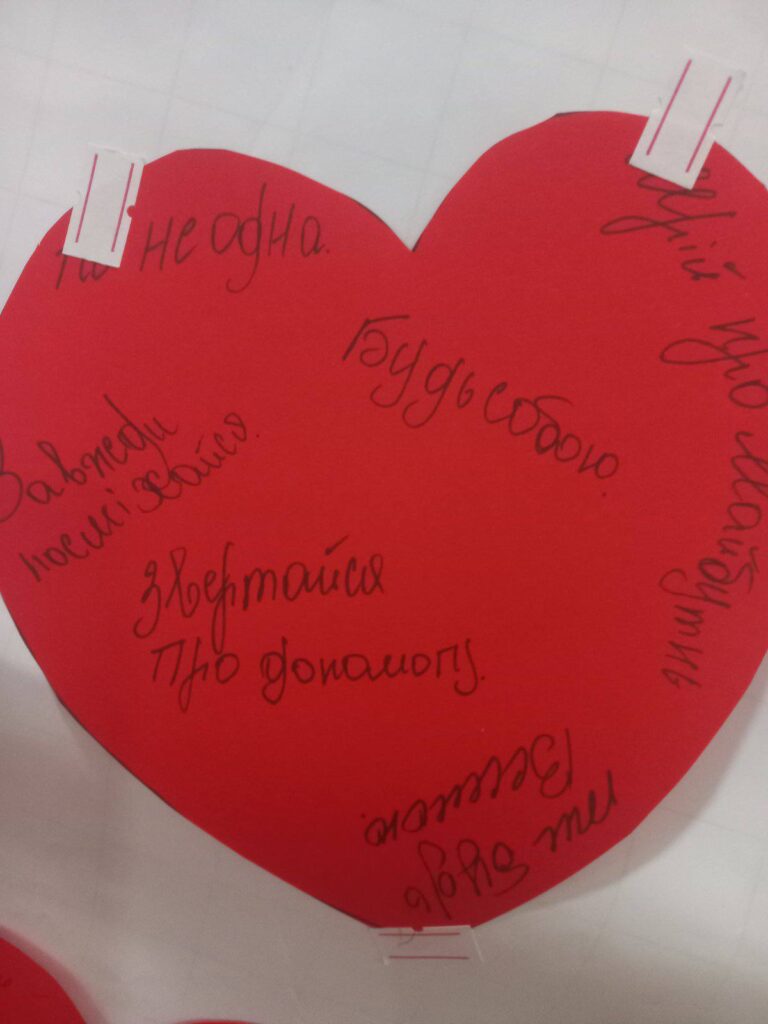 не одна.
Будь собою.
Завжди
посміхайся.
Звертайся
про допомогу.
мрій про майбутнь
ти будь
Веселою.